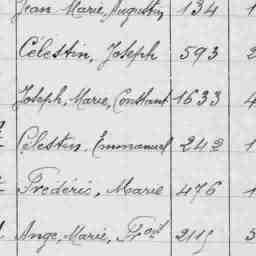 Jean Marie, Augustin, 134 1
Célestin, Joseph 593 2
Joseph, Marie, Constant 1633 4
Célestin, Emmanuel 242 1
Frédéric, Marie 476 1
Ange, Marie, 2115 5